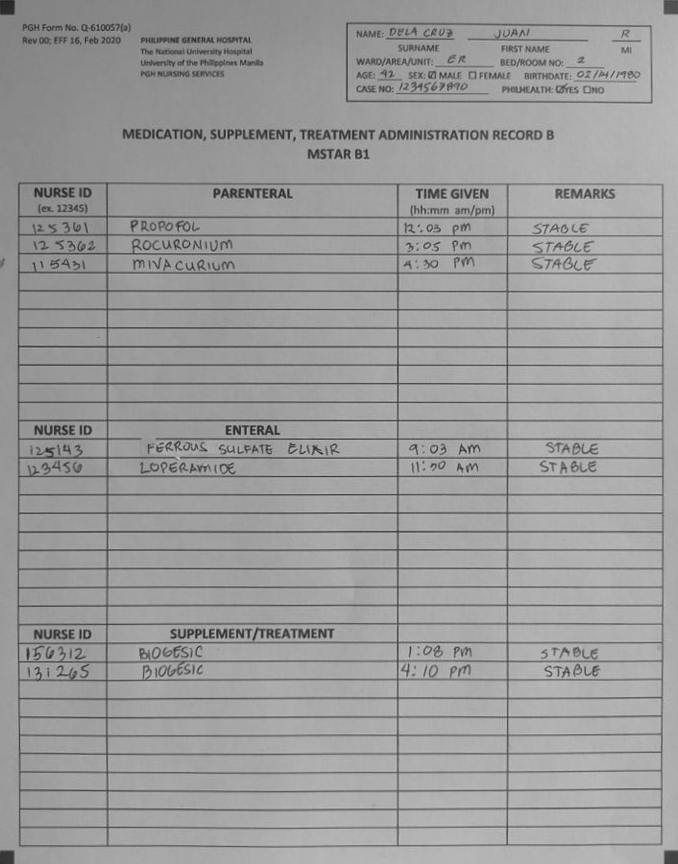 PGH Form No. Q-610057(a)
Rev 00; EFF 16, Feb 2020
PHILIPPINE GENERAL HOSPITAL
The National University Hospital
University of the Philippines Manila
PGH NURSING SERVICES
NAME: DELA CRUZ JUAN R
SURNAME FIRST NAME MI
WARD/AREA/UNIT: ER BED/ROOM NO: 2
AGE: 42 SEX: ☑ MALE ☐ FEMALE BIRTHDATE: 02/14/1980
CASE NO: 1234567890 PHILHEALTH: ☑YES ☐NO
MEDICATION, SUPPLEMENT, TREATMENT ADMINISTRATION RECORD B
MSTAR B1
NURSE ID PARENTERAL TIME GIVEN REMARKS
(ex. 12345) (hh:mm am/pm)
125361 PROPOFOL 12:03 pm STABLE
125362 ROCURONIUM 3:05 Pm STABLE
115431 MIVACURIUM 4:30 PM STABLE
NURSE ID ENTERAL
125143 FERROUS SULFATE ELIXIR 9:03 AM STABLE
123456 LOPERAMIDE AM STABLE
NURSE ID SUPPLEMENT/TREATMENT
156312 BIOGESIC 1:08 PM STABLE
131265 BIOGESIC 4:10 PM STABLE